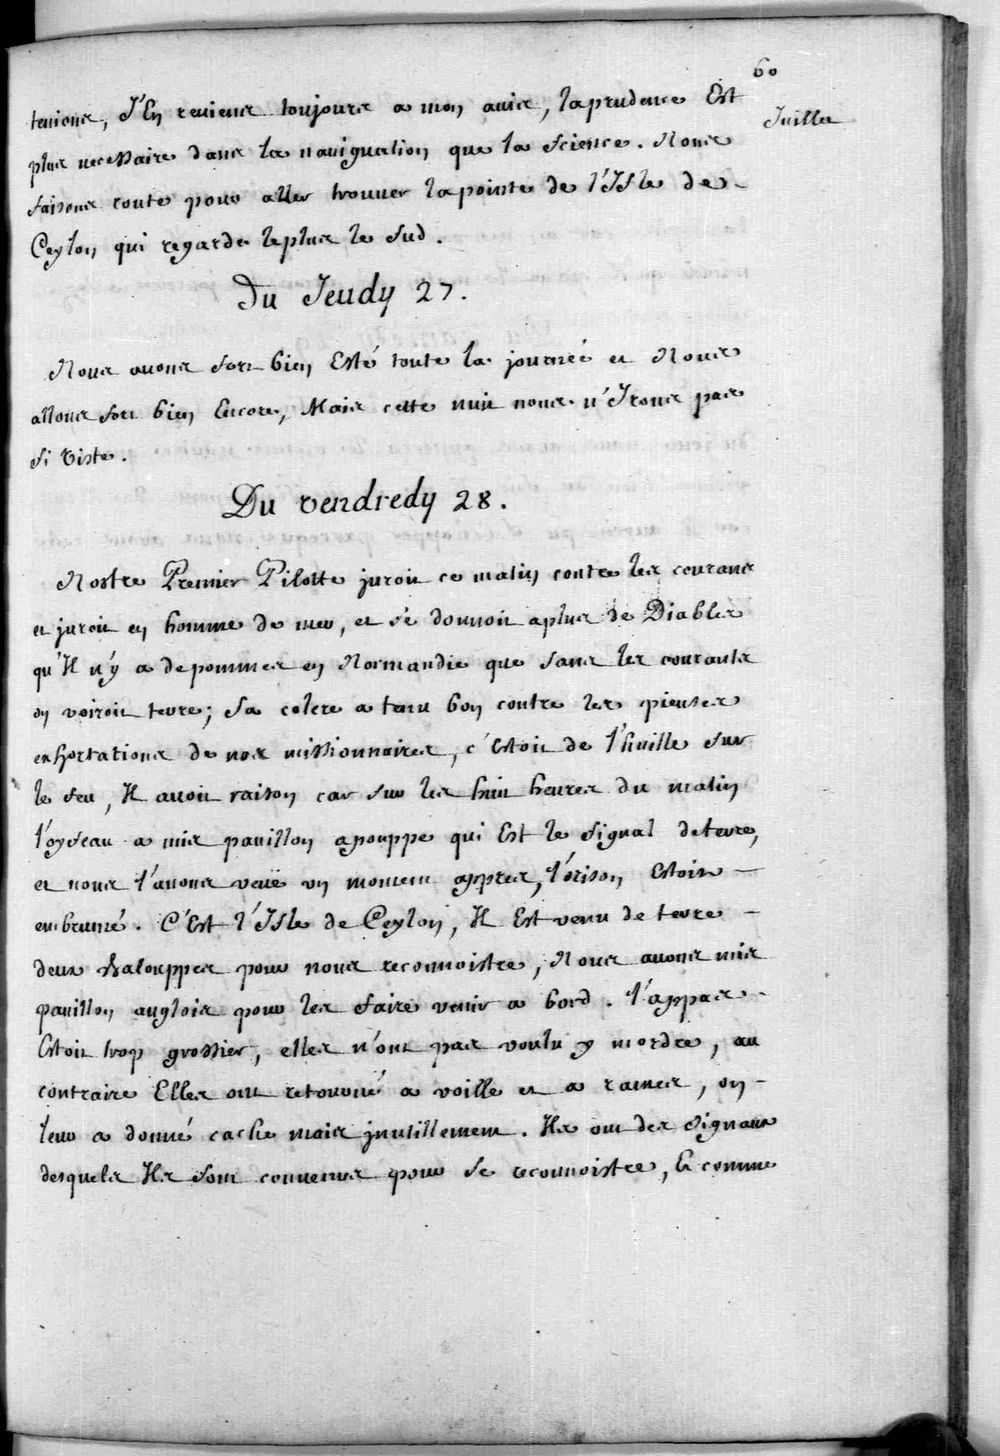 60
Juillet
tenions, J'En reviens toujours a mon avis, la prudence Est
plus necessaire dans la naviguation que la Science. Nous
faisons route pour aller trouver la pointe de l'Isle de
Ceylon qui regarde le plus le Sud.
Du Jeudy 27.
Nous avons fort bien Esté toute la journeé et Nous
allons fort bien Encore, Mais cette nuit nous n'Irons pas
si viste.
Du vendredy 28.
Nostre Premier Pilotte juroit ce matin contre les courans
et juroit en homme de mer, et se donnoit a plus de Diables
qu'Il n'y a de pommes en Normandie que sans les courants
on voiroit terre; Sa colere a tenu bon contre les pieuses
exhortations de nos missionnaires, c'Estoit de l'huille sur
le feu, Il avoit raison car sur les huit heures du matin
l'oyseau a mis pavillon a pouppe qui Est le signal de terre,
et nous l'avons veüe un moment appres, l'orison Estoit
embrumé. C'Est l'Isle de Ceylon, Il Est venu de terre
deux chalouppes pour nous reconnoistre, Nous avons mis
pavillon anglois pour les faire venir a bord. l'appas
Estoit trop grossier, elles n'ont pas voulu y mordre, au
contraire Elles ont retourné a voille et a rames, on
leur a donné cache mais jnutillement. Ils ont des signaux
desquels Ils sont convenus pour se reconnoistre, & comme